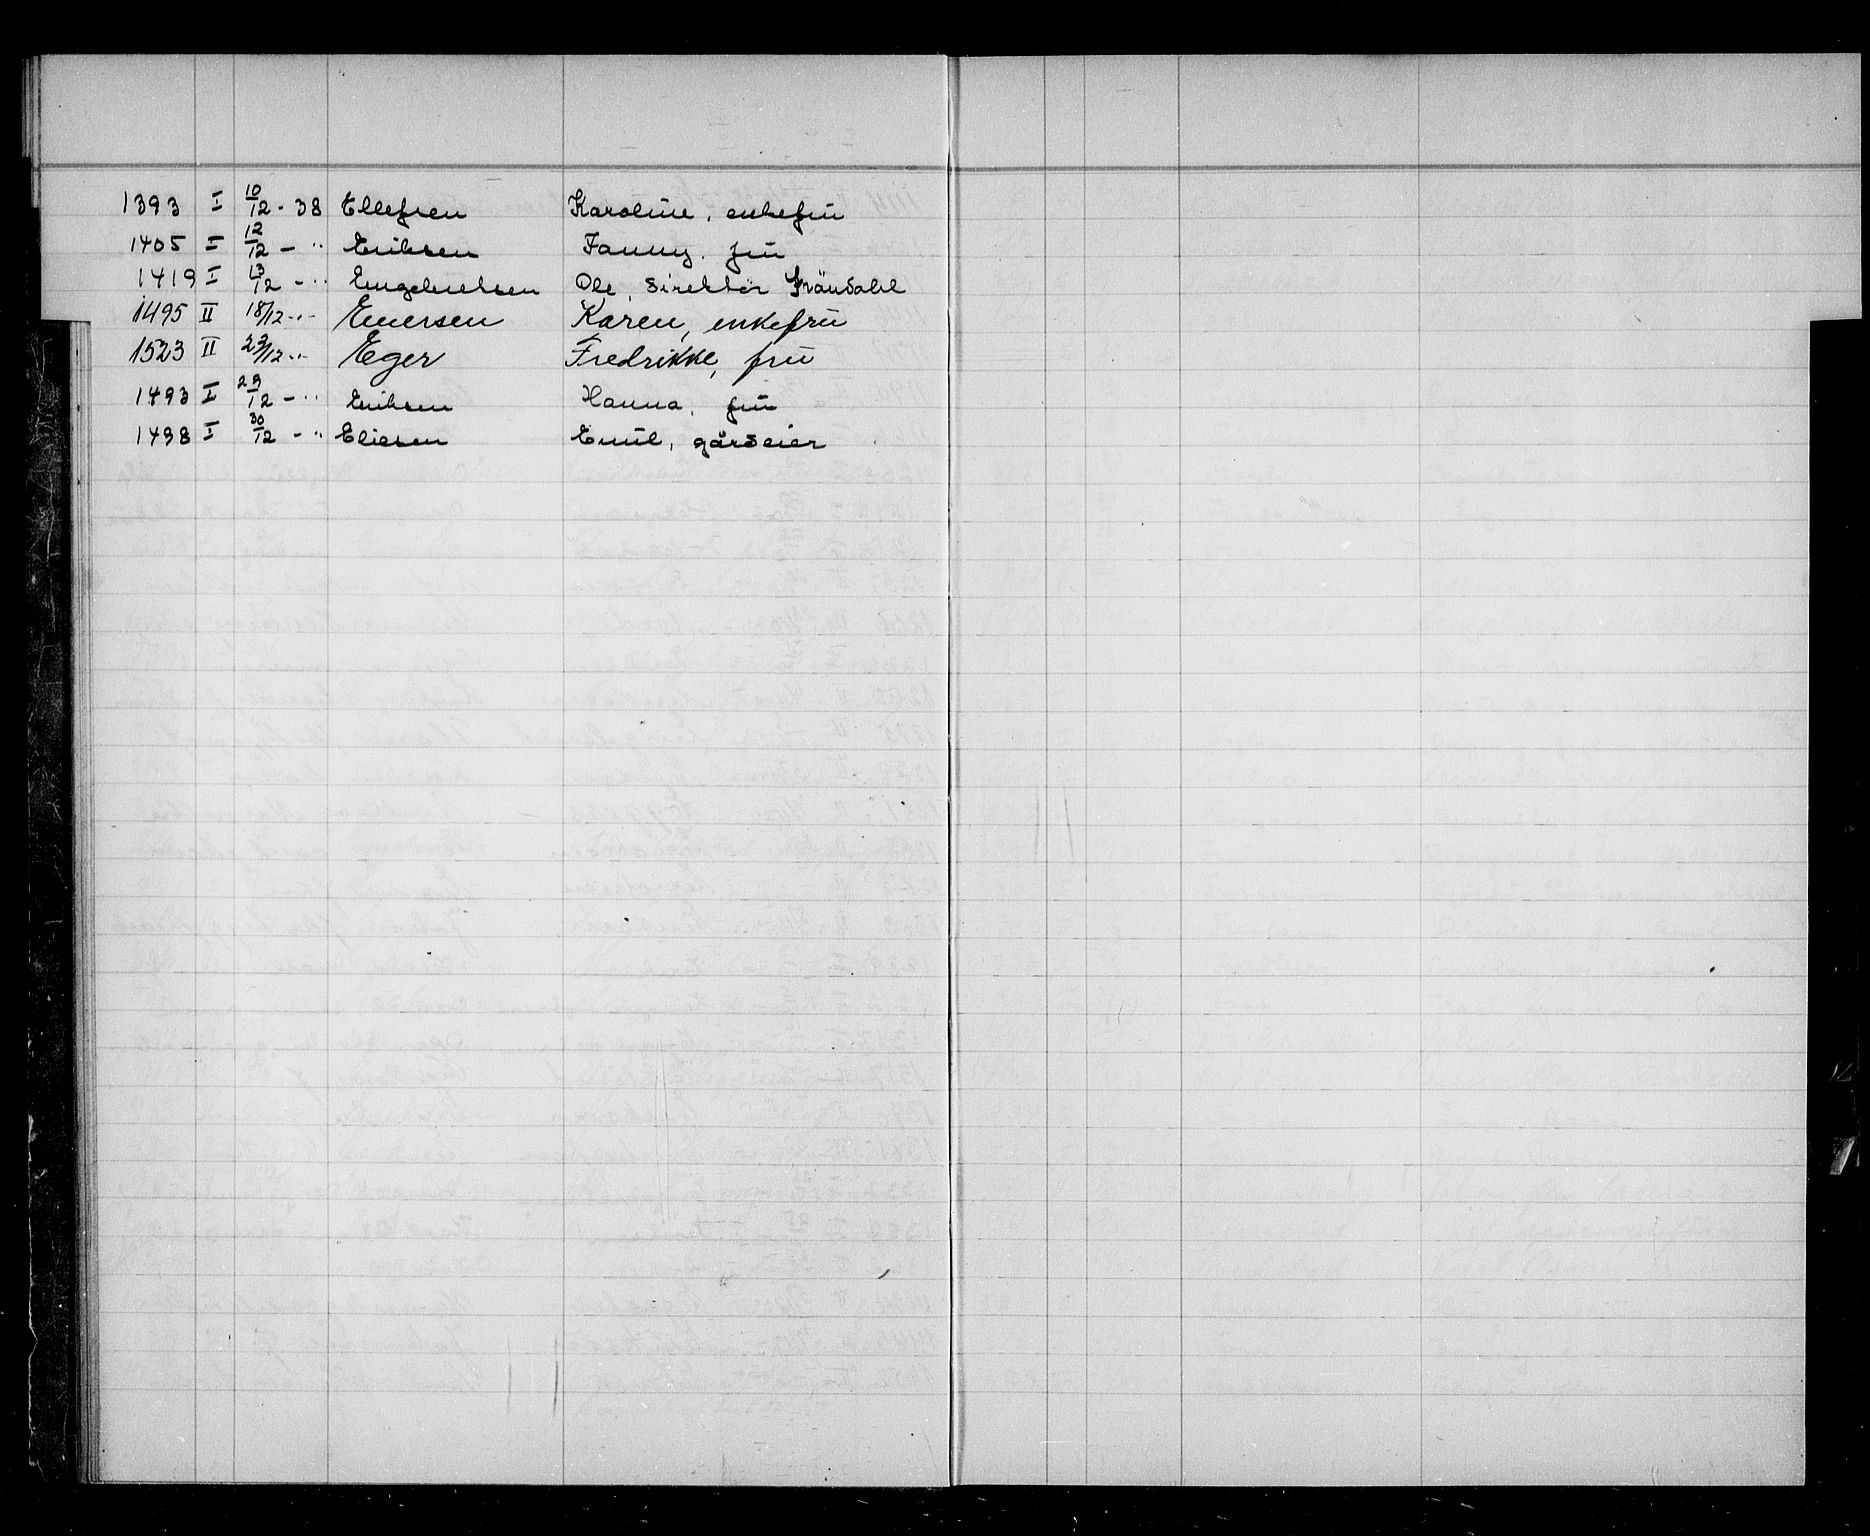 1393 I 10/12 - 38 Ellefsen Karoline, enkefru
1405 I 12/12 - " Eriksen Fanny, fru
1419 I 13/12 - " Engebretsen Ole, direktør Grändahl
1495 II 18/12 - " Enersen Karen, enkefru
1523 II 22/12 - " Eger Fredrikke, fru
1493 I 29/12 - " Eriksen Hanna, fru
1498 I 30/12 - " Eliesen Emil, gårdeier